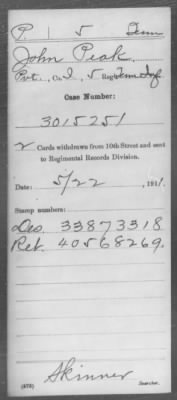 P | 5 | Tenn
John Peak
Pvt., Co. I, 5 Reg't Tenn Inf.
Case Number:
3015251
2 Cards withdrawn from 10th Street and sent
to Regimental Records Division.
Date: 5/22, 1911.
Stamp numbers:
Des. 33873318.
Ret. 40568269.
Skinner
(573) Searcher.